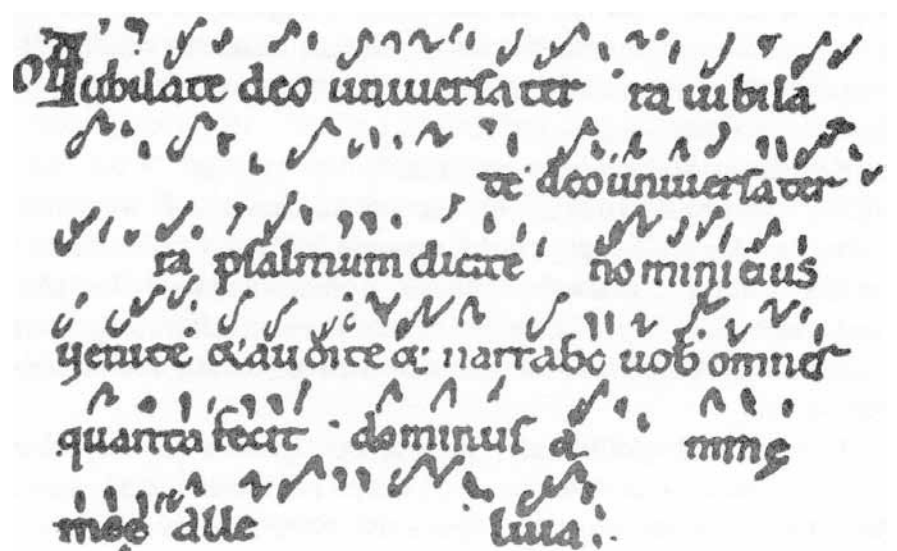 Of Iubilate deo uniuersa ter ra iubila
te deo uniuersa ter
ra psalmum dicite nomini eius
uenite & audite & narrabo uob omnes
quanta fecit dominus a nime
mee alle luia.